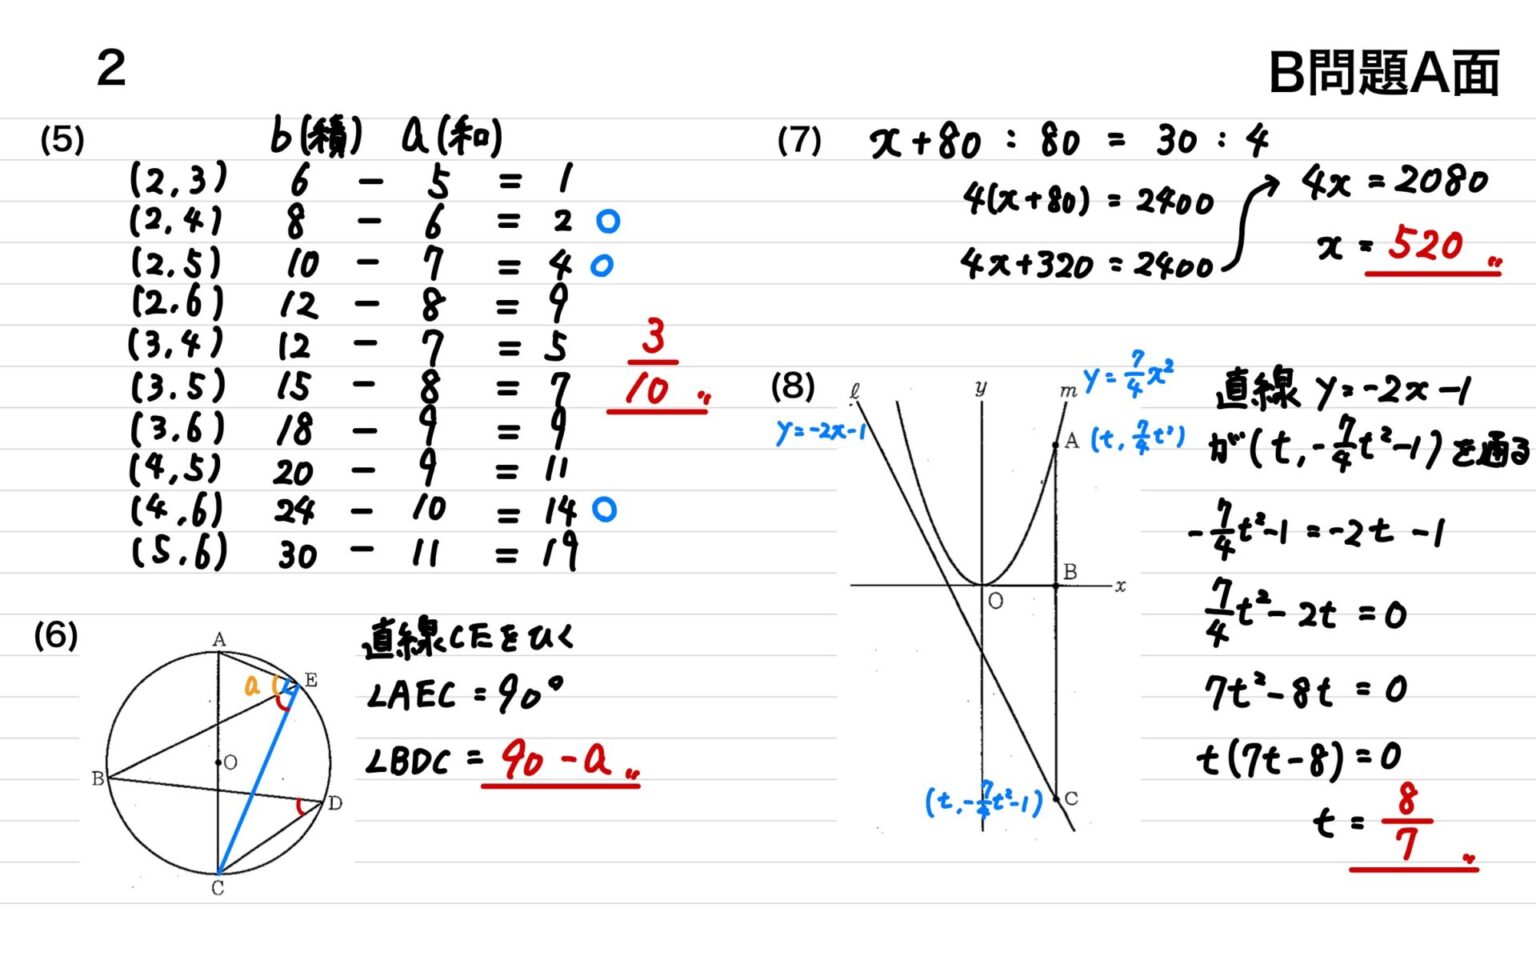 2
B問題A面
(5)
b(積) a(和)
(2,3) 6 − 5 = 1
(2,4) 8 − 6 = 2 ○
(2,5) 10 − 7 = 4 ○
(2,6) 12 − 8 = 9
(3,4) 12 − 7 = 5
(3,5) 15 − 8 = 7
(3,6) 18 − 9 = 9
(4,5) 20 − 9 = 11
(4,6) 24 − 10 = 14 ○
(5,6) 30 − 11 = 19
3/10
(6)
A
E
a
O
B
D
C
直線CEをひく
∠AEC = 90°
∠BDC = 90 − a
(7) x+80 : 80 = 30 : 4
4(x+80) = 2400
4x+320 = 2400
4x = 2080
x = 520
(8)
ℓ
y
m
y=7/4x²
y=-2x-1
A (t, 7/4t²)
B
x
O
(t, -7/4t²-1) C
直線 y=-2x-1
が(t, -7/4t²-1)を通る
-7/4t²-1 = -2t -1
7/4t² - 2t = 0
7t² - 8t = 0
t(7t-8) = 0
t = 8/7